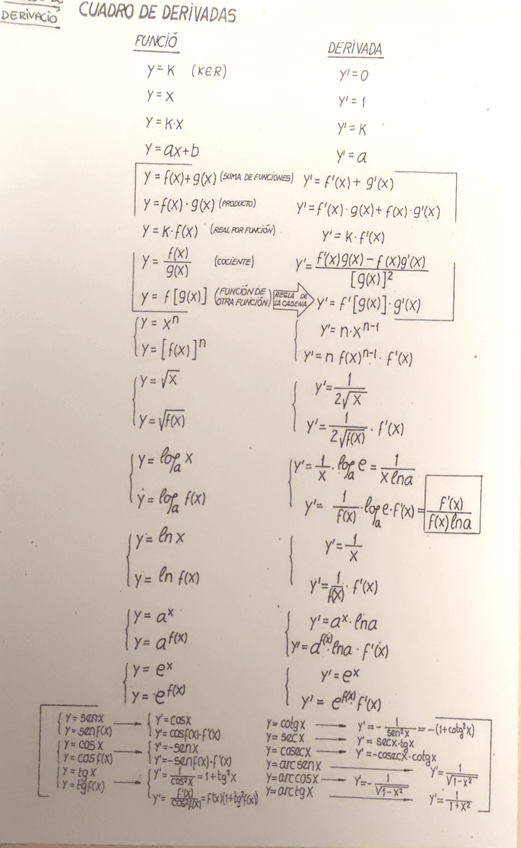 DERIVACIÓ
CUADRO DE DERIVADAS
FUNCIÓ DERIVADA
y = K (K∈R) y' = 0
y = x y' = 1
y = K·x y' = K
y = ax+b y' = a
y = f(x)+g(x) (SUMA DE FUNCIONES) y' = f'(x) + g'(x)
y = f(x)·g(x) (PRODUCTO) y' = f'(x)·g(x) + f(x)·g'(x)
y = K·f(x) (REAL POR FUNCIÓN) y' = K·f'(x)
y = f(x)/g(x) (COCIENTE) y' = f'(x)g(x) - f(x)g'(x) / [g(x)]²
y = f[g(x)] (FUNCIÓN DE OTRA FUNCIÓN) REGLA DE LA CADENA y' = f'[g(x)]·g'(x)
y = xⁿ y' = n·xⁿ⁻¹
y = [f(x)]ⁿ y' = n f(x)ⁿ⁻¹·f'(x)
y = √x y' = 1/(2√x)
y = √f(x) y' = 1/(2√f(x)) · f'(x)
y = logₐ x y' = 1/x · logₐ e = 1/(x ln a)
y = logₐ f(x) y' = 1/f(x) · logₐ e · f'(x) = f'(x)/(f(x) ln a)
y = ln x y' = 1/x
y = ln f(x) y' = 1/f(x) · f'(x)
y = a^x y' = a^x · ln a
y = a^f(x) y' = a^f(x) · ln a · f'(x)
y = e^x y' = e^x
y = e^f(x) y' = e^f(x) · f'(x)
y = sen x → y' = cos x
y = sen f(x) y' = cos f(x)·f'(x)
y = cos x → y' = -sen x
y = cos f(x) y' = -sen f(x)·f'(x)
y = tg x → y' = 1/cos²x = 1+tg²x
y = tg f(x) y' = f'(x)/cos²f(x) = f'(x)(1+tg²f(x))
y = cotg x → y' = - 1/sen²x = -(1+cotg²x)
y = sec x → y' = sec x·tg x
y = cosec x → y' = -cosec x·cotg x
y = arc sen x → y' = 1/√(1-x²)
y = arc cos x → y' = - 1/√(1-x²)
y = arc tg x → y' = 1/(1+x²)